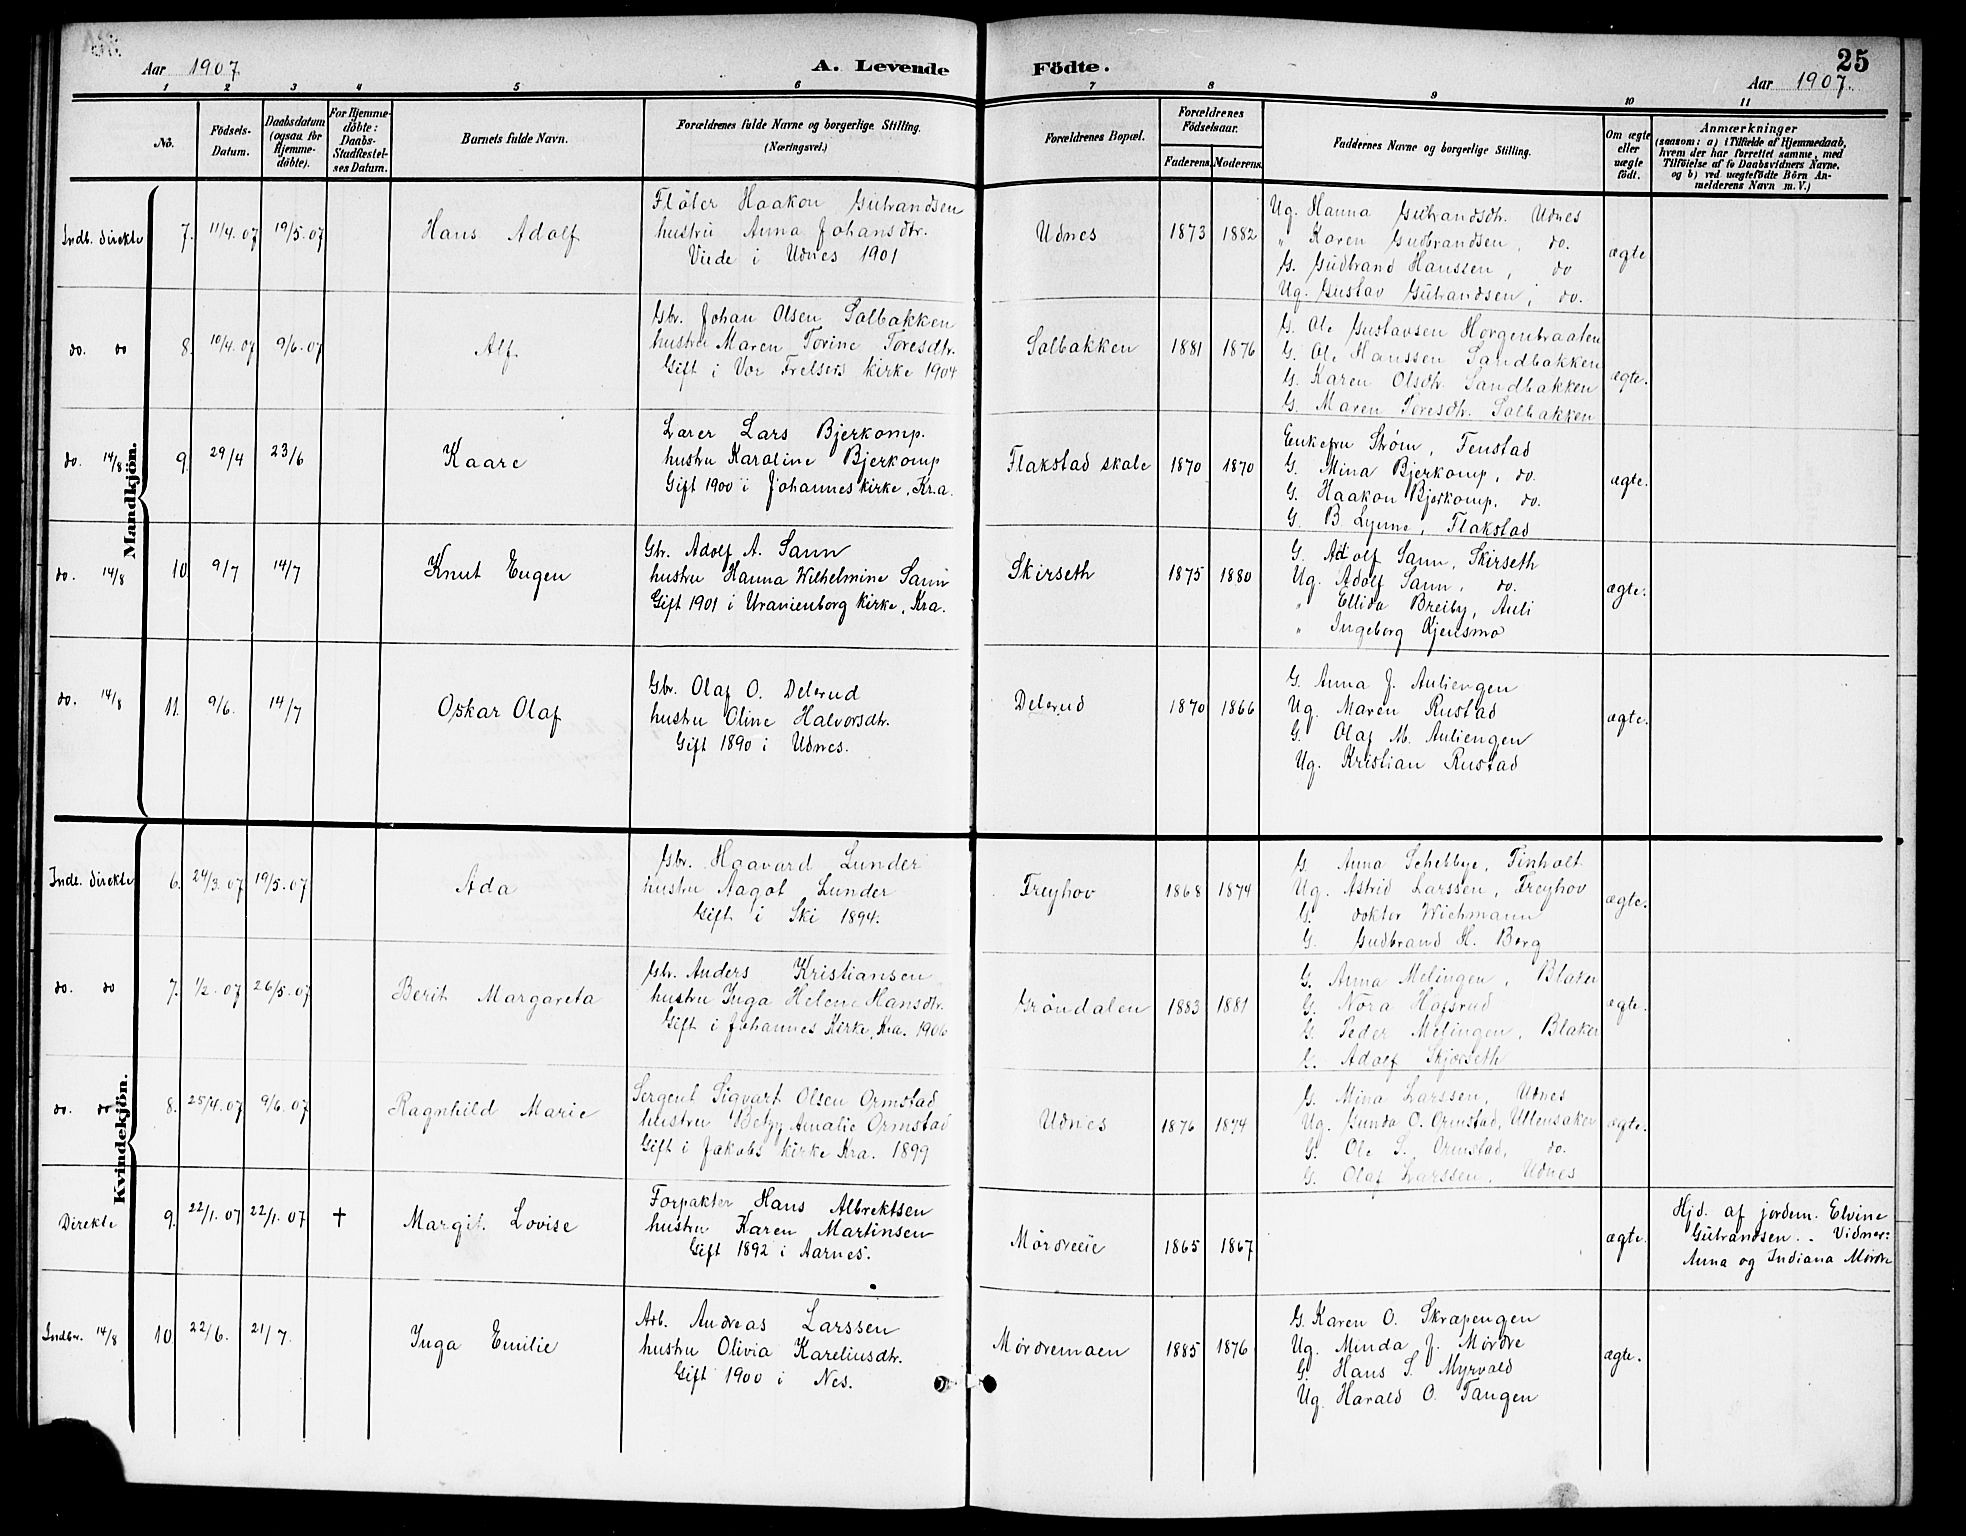 25
Aar 1907
A. Levende Födte.
Aar 1907.
1 2 3 4 5 6 7 8 9 10 11
No.
Födsels-Datum.
Daabsdatum (ogsaa for Hjemme-döbte).
For Hjemme-döbte: Daabs-Stadfæstel-ses Datum.
Barnets fulde Navn.
Forældrenes fulde Navne og borgerlige Stilling.
(Næringsvei.)
Forældrenes Bopæl.
Forældrenes Födselsaar.
Faderens. Moderens.
Faddernes Navne og borgerlige Stilling.
Om ægte eller uægte födt.
Anmærkninger
(saasom: a) i Tilfælde af Hjemmedaab,
hvem der har forrettet samme, med
Tilföielse af to Daabsvidners Navne.
og b) ved uægtefödte Börn An-
melderens Navn m. V.)
Mandkjön.
Indb. direkte 7. 11/4.07 19/5.07 Hans Adolf
Fløter Haakon Gulbrandsen
hustru Anna Johansdtr.
Viede i Udnes 1901
Udnes 1873 1882
Ug. Hanna Gulbrandsdtr. Udnes
" Karen Gudbrandsen, do.
G. Gudbrand Hanssen, do
Ug. Gustav Gulbrandsen, do.
ægte
do. do 8. 10/4.07 9/6.07 Alf
Gbr. Johan Olsen Solbakken
hustru Maren Torine Toresdtr.
Gift i Vor Frelsers kirke 1904
Solbakken 1881 1876
G. Ole Gustavsen Horgenbraaten
G. Ole Hanssen Sandbakken
G. Karen Olsdtr. Sandbakken
G. Maren Toresdtr. Solbakken
ægte.
do. 14/8 9. 29/4 23/6 Kaare
Lærer Lars Bjerkomp.
hustru Karoline Bjerkomp
Gift 1900 i Johannes kirke, Kr.a.
Flakstad skole 1870 1870
Enkefru Strøm, Fenstad
G. Mina Bjerkomp, do.
G. Haakon Bjerkomp, do.
G. B Lynne, Flakstad
ægte.
do. 14/8 10 9/7 14/7 Knut Eugen
Gbr. Adolf A. Sann
hustru Hanna Wilhelmine Sann
Gift 1901 i Uranienborg kirke, Kra.
Skirseth 1875 1880
G. Adolf Sann, Skirseth
Ug. Adolf Sann, do.
" Ellida Breiby, Auli
" Ingeborg Kjensmo
ægte.
do. 14/8 11. 9/6. 14/7 Oskar Olaf
Gbr. Olaf O. Delerud
hustru Oline Halvorsdtr.
Gift 1890 i Udnes.
Delerud 1870 1866
G. Anna J. Auliengen
Ug. Maren Rustad
G. Olaf M. Auliengen
Ug. Kristian Rustad
ægte.
Kvindekjön.
Indb. direkte 6. 24/3.07 19/5.07 Ada
Gbr. Haavard Lunder
hustru Aagot Lunder
Gift i Ski 1894.
Freyhov 1868 1874
G. Anna Schebbye, Tinholt
Ug. Astrid Larssen, Freyhov
G. doktor Wichmann
G. Gudbrand H. Berg
ægte.
do. do 7. 1/2.07 26/5.07 Berit Margareta
Gbr. Anders Kristiansen
hustru Inga Helene Hansdtr.
Gift i Johannes Kirke, Kra. 1906
Grøndalen 1883 1881
G. Anna Melingen, Blaker
G. Nora Hofsrud
G. Peder Melingen, Blaker
G. Adolf Skjoeseth
ægte.
do. do 8. 25/4.07 9/6.07 Ragnhild Marie
Sergent Sigvart Olsen Ormstad
hustru Betzy Amalie Ormstad
Gift i Jakobs kirke Kra. 1899
Udnes 1876 1874
G. Mina Larssen, Udnes
Ug. Gunda O. Ormstad, Ullensaker
G. Ole S. Ormstad, do.
G. Olaf Larssen, Udnes
ægte.
Direkte 9. 22/1.07 22/1.07 † Margit Lovise
Forpakter Hans Albrektsen
hustru Karen Martinsen
Gift 1892 i Aarnes.
Mørdreeie 1865 1867
ægte.
Hjd. af jordem. Elvine
Gulbrandsen. - Vidner:
Anna og Indiana Mørdre
Indbr. 14/8 10 22/6. 21/7. Inga Emilie
Arb. Andreas Larssen
hustru Olivia Kareliusdtr.
Gift 1900 i Nes.
Mørdremoen 1885 1876
G. Karen O. Skrapengen
Ug. Minda J. Mørdre
G. Hans S. Myrvold
Ug. Harald O. Tangen
ægte.